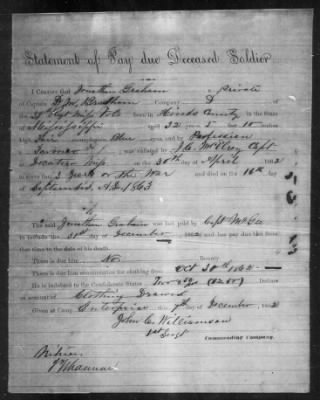 Statement of Pay due Deceased Soldier
I Certify that Jonathan Graham a private
of Captain D. W. Company D
of the Regt Miss Vols born in Hinds County in the State
of Mississippi aged 32 years 5 feet 10 inches
high Fair complexion Blue eyes and by Profession
Farmer was J. C. McElroy Capt
Decatur Miss on the 30th day of April 1862
to serve 3 Years or the War and died on the 16th day
of September A.D. 1863
The said Jonathan Graham was last paid by Capt McGee
to include the 31st day of December 1862 and has pay due from
that time to the date of his death.
There is due him No Bounty
There is due him commutation for clothing from Oct 30th 1862
He is indebted to the Confederate States Two 50/100 ($2.50) Dollars
on account of Clothing Drawn
Given at Camp Enterprise this 7th day of December 1863
John C. Williamson
1st Lieut
Commanding Company.